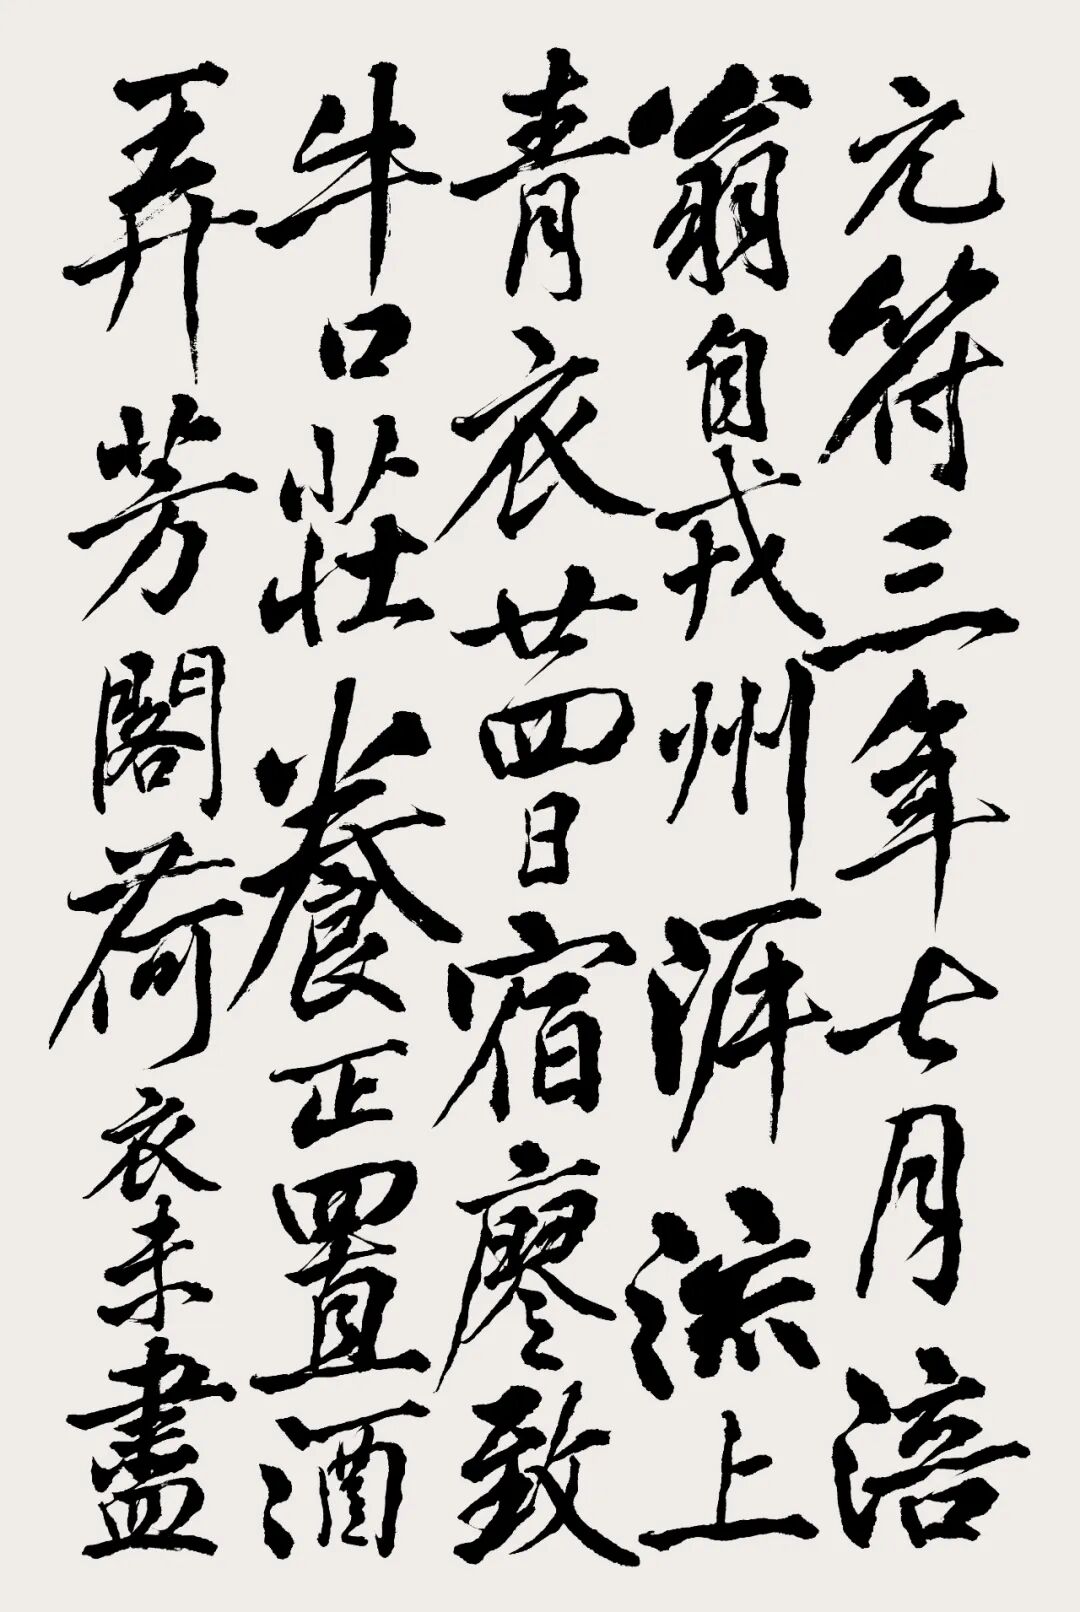 元符三年七月涪
翁自戎州泝流上
青衣廿四日宿廖致
平牛口莊養正置酒
弄芳閣荷衣未盡